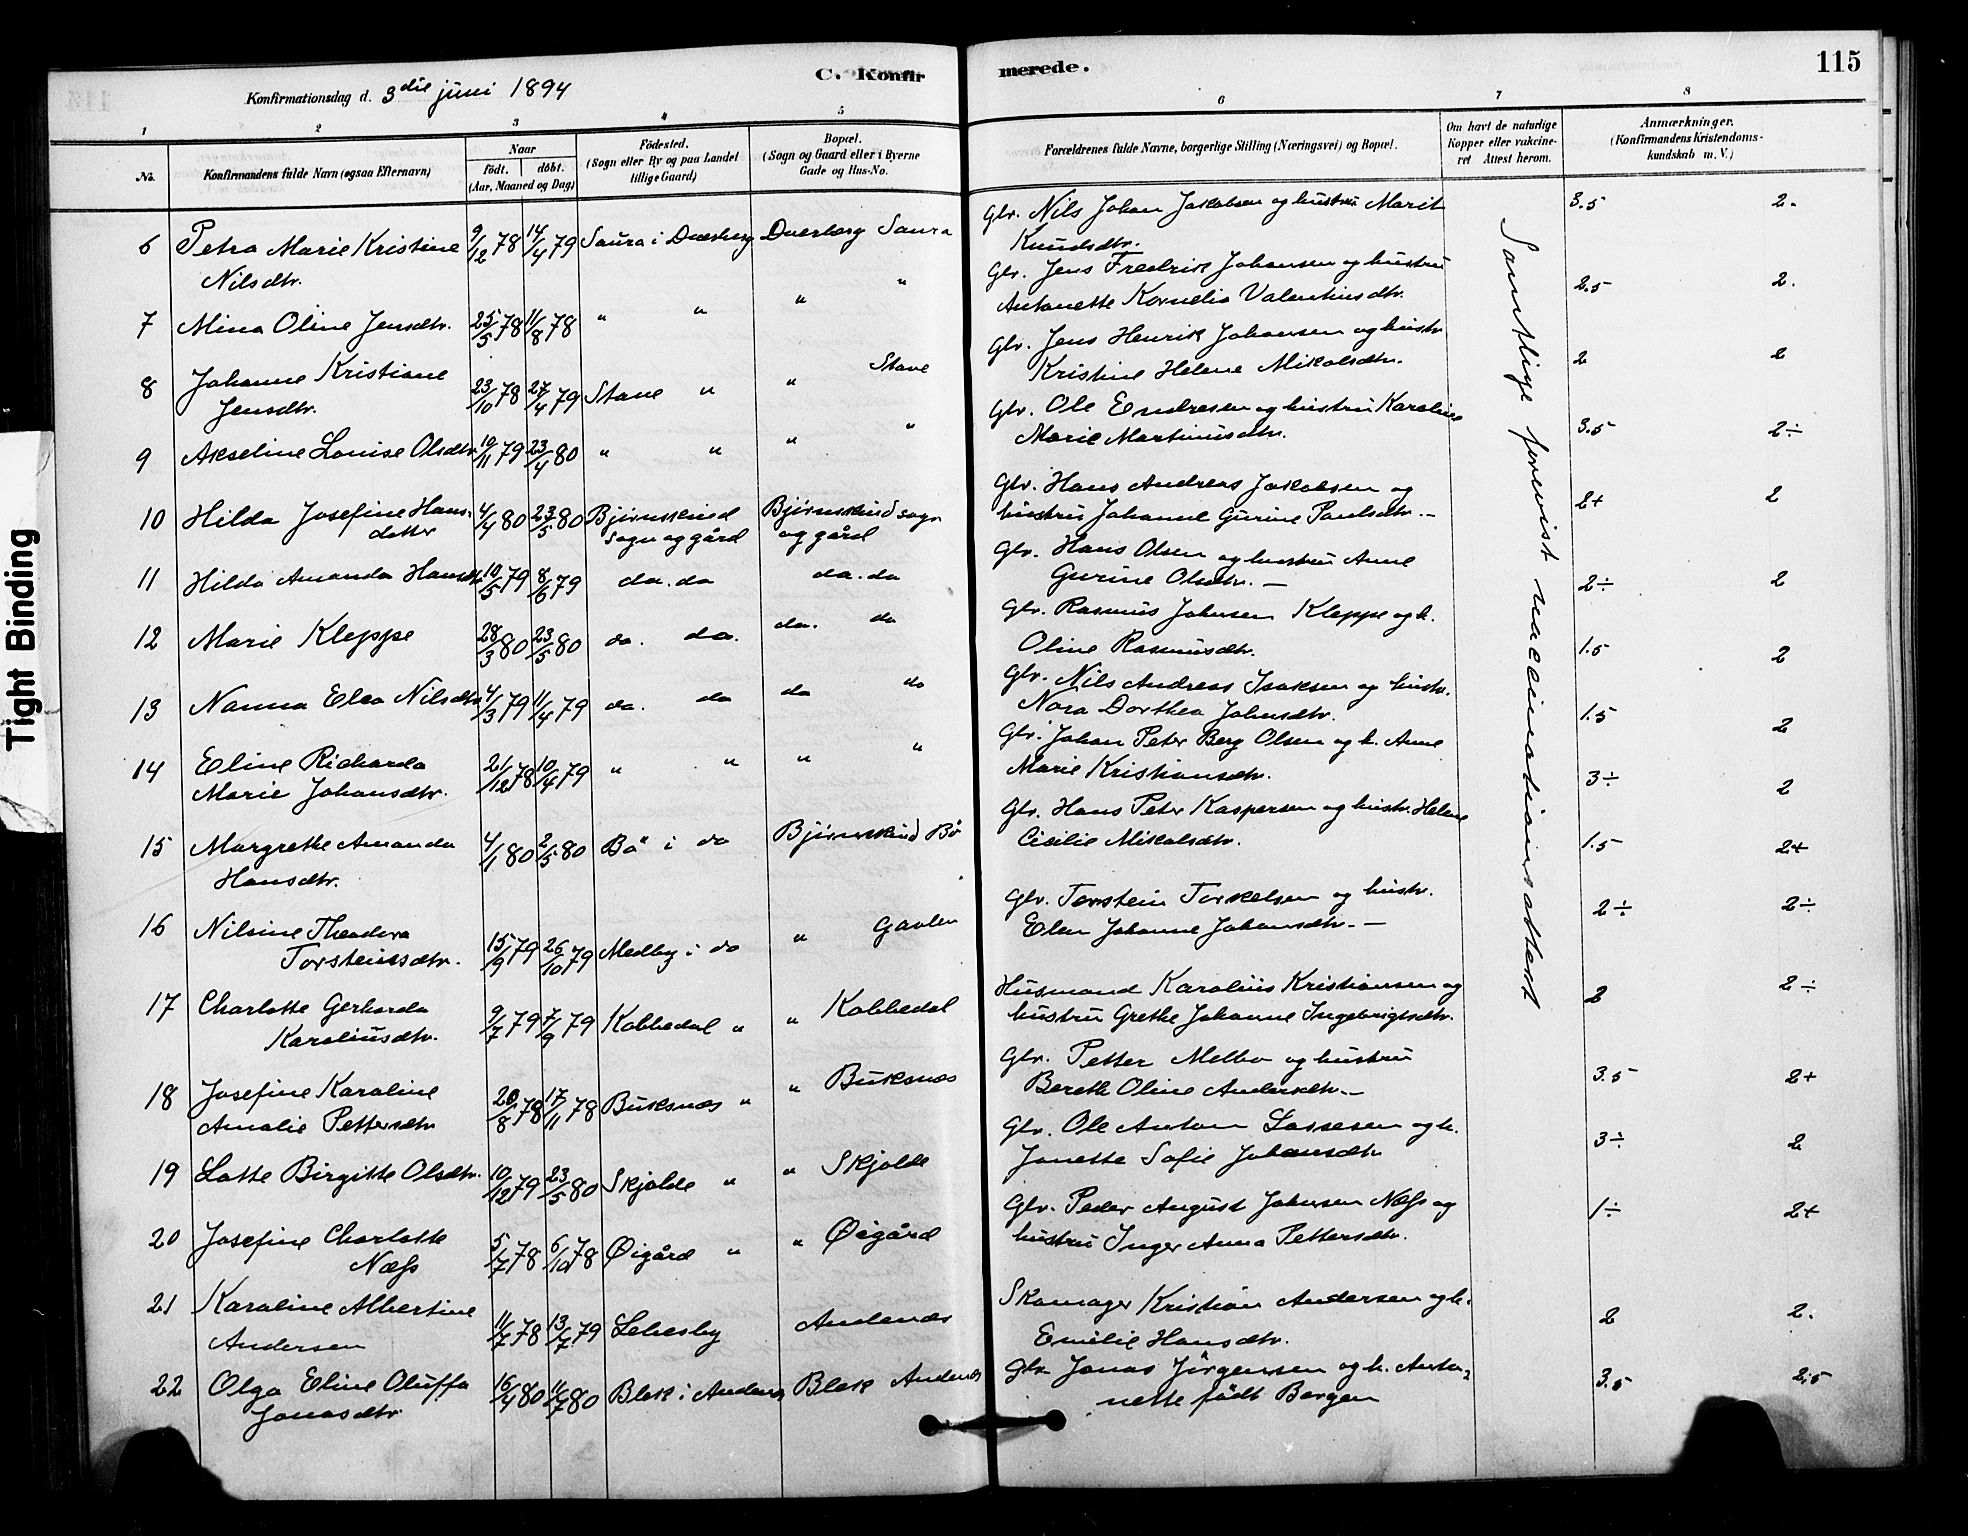 115
C. Konfirmerede.
Konfirmationsdag d. 3die juni 1894
1 2 3 4 5 6 7 8
No. Konfirmandens fulde Navn (ogsaa Efternavn) Naar født. døbt. (Aar, Maaned og Dag) Fødested. (Sogn eller By og paa Landet tillige Gaard) Bopæl. (Sogn og Gaard eller i Byerne Gade og Hus-No. Forældrenes fulde Navne, borgerlige Stilling (Næringsvei) og Bopæl. Om havt de naturlige Kopper eller vakcineret Attest herom. Anmærkninger. (Konfirmandens Kristendomskundskab m. V.)
Samtlige forevist vaccinationsattest
6 Petra Marie Kristine Nilsdtr. 9/12 78 14/4 79 Saura i Dverberg Dverberg Saura Gbr. Nils Johan Jakobsen og hustru Marit Knudsdtr. 3.5 2.
7 Mina Oline Jensdtr. 25/5 78 11/8 78 " " " " Gbr. Jens Fredrik Johansen og hustru Antonette Kornelia Valentinsdtr. 2.5 2.
8 Johanne Kristiane Jensdtr. 23/10 78 27/4 79 Stave " " Stave Gbr. Jens Henrik Johansen og hustr. Kristine Helene Mikalsdtr. 2 2
9 Akseline Lovise Olsdtr 19/11 79 23/4 80 " " " " Gbr. Ole Endresen og hustru Karoline Marie Martinusdtr. 3.5 2÷
10 Hilda Josefine Hansdatter 4/4 80 23/5 80 Bjørnskind sogn og gård Bjørnskind sogn og gård Gbr. Hans Andreas Jakobsen og hustru Johanne Gurine Paulsdtr. – 2+ 2
11 Hilda Amanda Hansdtr 10/5 79 8/6 79 do. do do. do Gbr. Hans Olsen og hustru Anne Gurine Olsdtr. – 2÷ 2
12 Marie Kleppe 28/3 80 23/5 80 do. do. do. do Gbr. Rasmus Johnsen Kleppe og h. Oline Rasmusdtr. 1.5 2
13 Nanna Elea Nilsdtr 4/3 79 11/4 79 do. do do do Gbr. Nils Andreas Isaksen og hustr. Nora Dorthea Johnsdtr. 1.5 2
14 Eline Richarda Marie Johansdtr. 21/12 78 10/4 79 " " " " Gbr. Johan Peter Berg Olsen og h. Anne Marie Kristiansdtr. 3÷ 2
15 Margrethe Amanda Hansdtr. 4/1 80 2/5 80 Bø i do Bjørnskind Bø Gbr. Hans Peter Kaspersen og hustr. Helene Cicilie Mikalsdtr. 1.5 2+
16 Nilsine Theodora Torsteinsdtr. 15/9 79 26/10 79 Medby i do " Gavlen Gbr. Torstein Torkelsen og hustr. Elen Johanne Johansdtr. – 2÷ 2÷
17 Charlotte Gerharda Karoliusdtr. 9/7 79 7/9 79 Kobbedal " " Kobbedal Husmand Karolius Kristiansen og hustru Grethe Johanne Ingebrigtsdtr. 2 2÷
18 Josefine Karoline Amalie Pettersdtr 20/8 78 17/11 78 Buksnæs " " Buksnæs Gbr. Petter Melbo og hustru Berethe Oline Andersdtr. – 3.5 2+
19 Lotte Birgitte Olsdtr. 10/12 79 23/5 80 Skjolde " " Skjolde Gbr. Ole Anton Lassesen og h. Jonette Sofie Johansdtr 3÷ 2
20 Josefine Charlotte Næss 5/7 78 6/10 78 Øigård " " Øigård Gbr. Peder August Johnsen Næss og hustru Inger Anna Pettersdtr. 1÷ 2+
21 Karoline Albertine Andersen 11/7 78 13/7 79 Lebesby Andenæs Skomager Kristian Andersen og h. Emilie Hansdtr. 2 2.
22 Olga Eline Oluffa Jonasdtr 16/4 80 11/7 80 Blek i Andenæs Blek Andenæs Gbr Jonas Jørgensen og h. Antonette født Borgen 3.5 2.5
Tight Binding